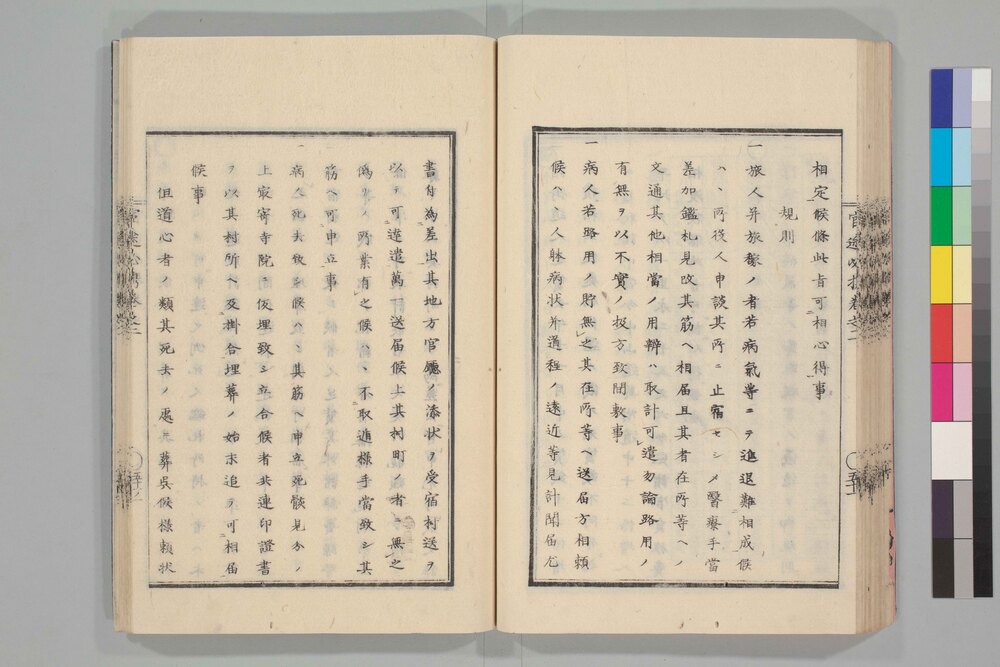 相定候條此旨可相心得事
規則
一旅人并旅稼ノ者若病氣等ニテ進退難相成候
ハヽ所役人申談其所ニ止宿セシメ醫療手當
差加鑑札見改其筋ヘ相届且其者在所等ヘノ
文通其他相當ノ用辨ハ取計可遣勿論路用ノ
有無ヲ以不實ノ扱方致間敷事
一病人若路用ノ貯無之其在所等ヘ送届方相頼
候ハ逗人躰病状并道程ノ遠近等見計聞届尤
書付為差出其地方官廳ノ添状ヲ受宿村送ヲ
以テ可差遣萬一送届候上其村町継者ニ無之
偽リノ所業有之候ハヽ不取逃様手當致シ其
筋ヘ可申立事
一病人死去致シ候ハヽ其筋ヘ申立死骸見分ノ
上最寄寺院ニ仮埋致シ立合候者共連印證書
ヲ以其村所ヘ及掛合埋葬ノ始末追テ可相届
候事
但道心者ノ類其死去ノ處ニ葬呉候様頼状